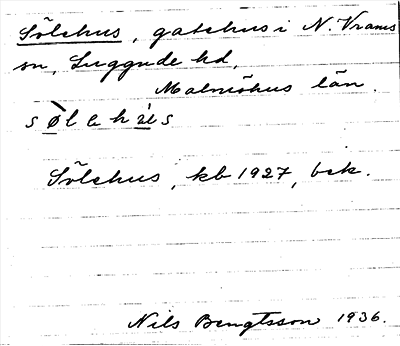 Sölehus, gatehus i N. Vrams
sn, Luggude hd,
Malmöhus län.
sø̀lehús
Sölehus, kb 1927, bek.
Nils Bengtsson 1936.